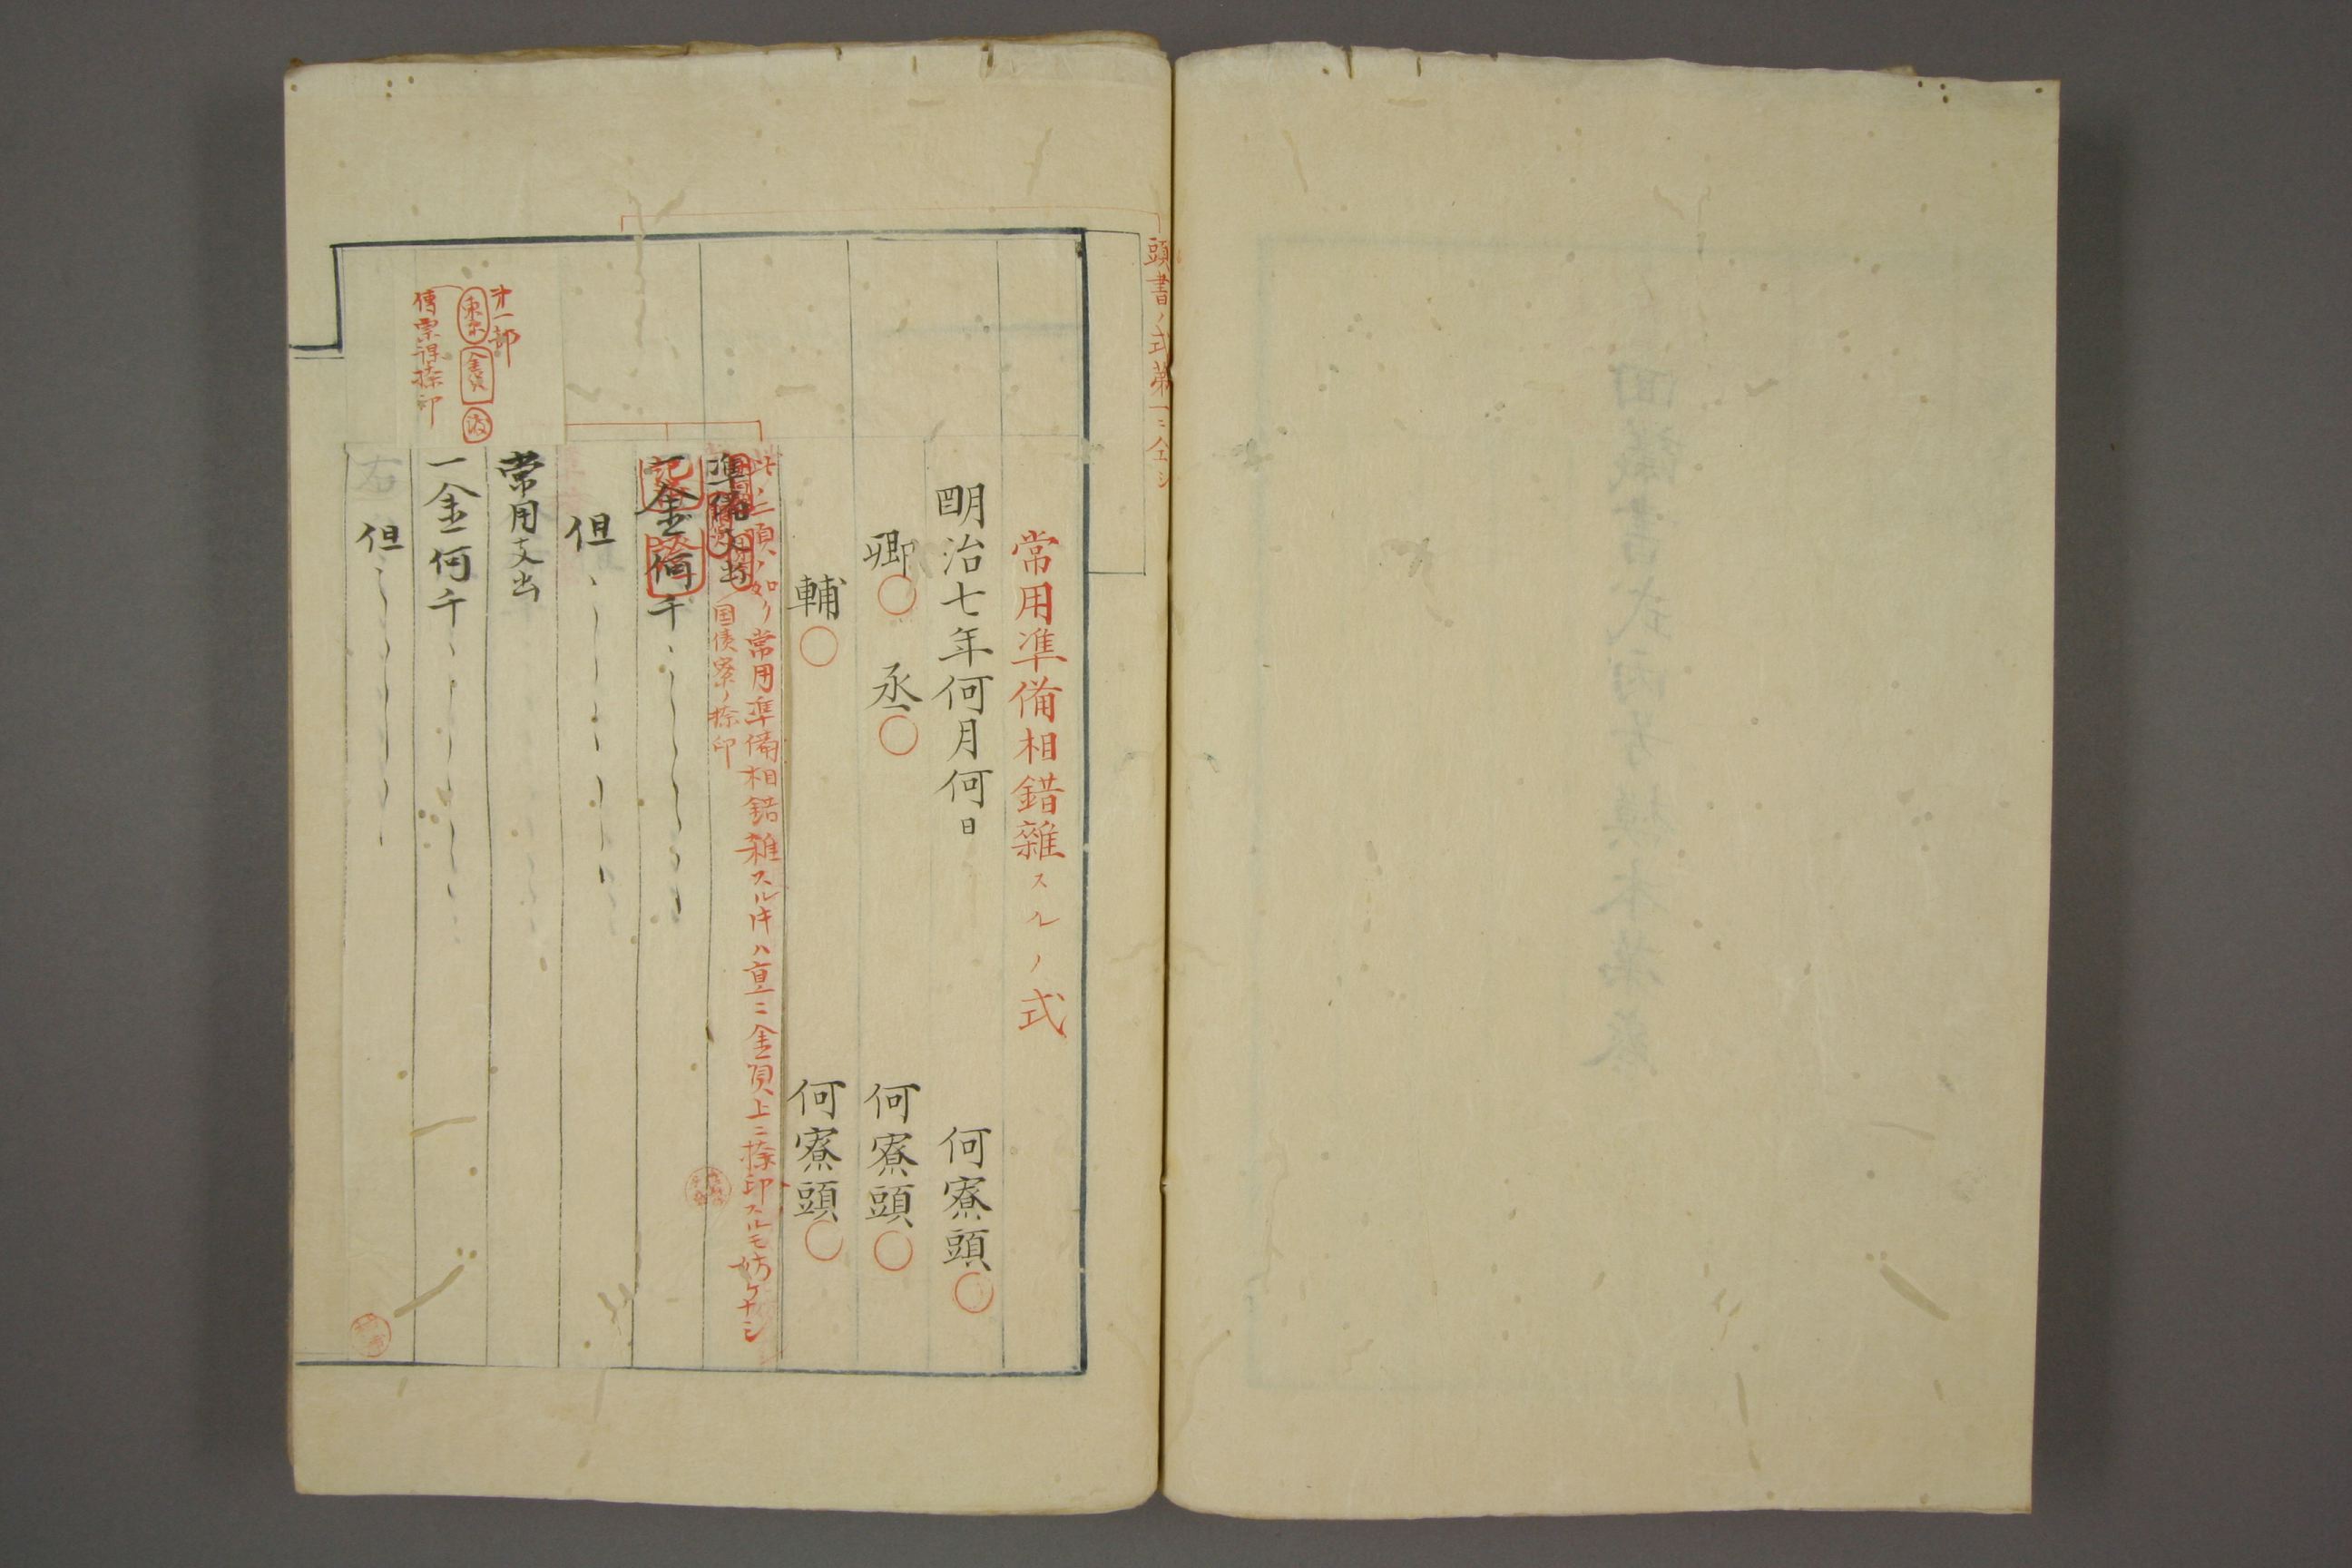 頭書ノ式第一ニ仝シ
常用準備相錯雜スルノ式
明治七年何月何日
何寮頭
卿
丞
何寮頭
輔
何寮頭
此ノ二項ノ如ク常用準備相錯雑スルトキハ直ニ金員上ニ捺印スルモ妨ケナシ
国債寮ノ捺印
準備
一金何千
但
常用支出
一金何千
但
右
才一部
東京
傳票得捺印